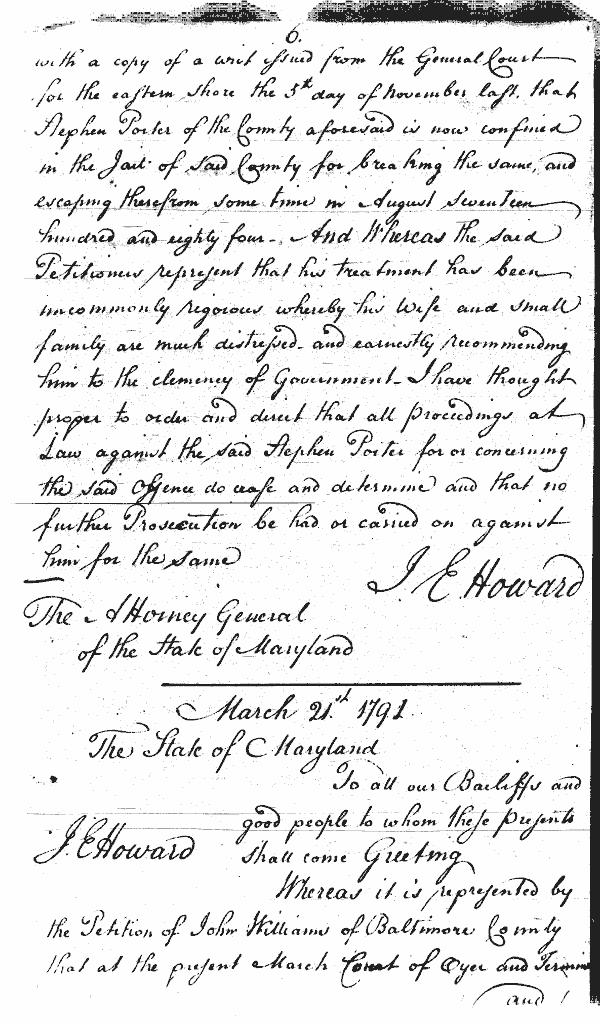 6.
with a copy of a writ issued from the General Court
for the eastern shore the 5th day of November last, that
Stephen Porter of the County aforesaid is now confined
in the Jail of said County for breaking the same, and
escaping therefrom some time in August seventeen
hundred and eighty four-. And Whereas the said
Petitioners represent that his treatment has been
uncommonly rigorous whereby his Wife and small
family are much distressed- and earnestly recommending
him to the clemency of Government- I have thought
proper to order and direct that all proceedings at
Law against the said Stephen Porter for or concerning
the said Offence do cease and determine and that no
further Prosecution be had or carried on against
him for the same
J. E. Howard
The Attorney General
of the State of Maryland
March 21.st 1791
The State of Maryland
To all our Bailiffs and
good people to whom these presents
J. E. Howard shall come Greeting
Whereas it is represented by
the Petition of John Williams of Baltimore County
that at the present March Court of Oyer and Termine
and